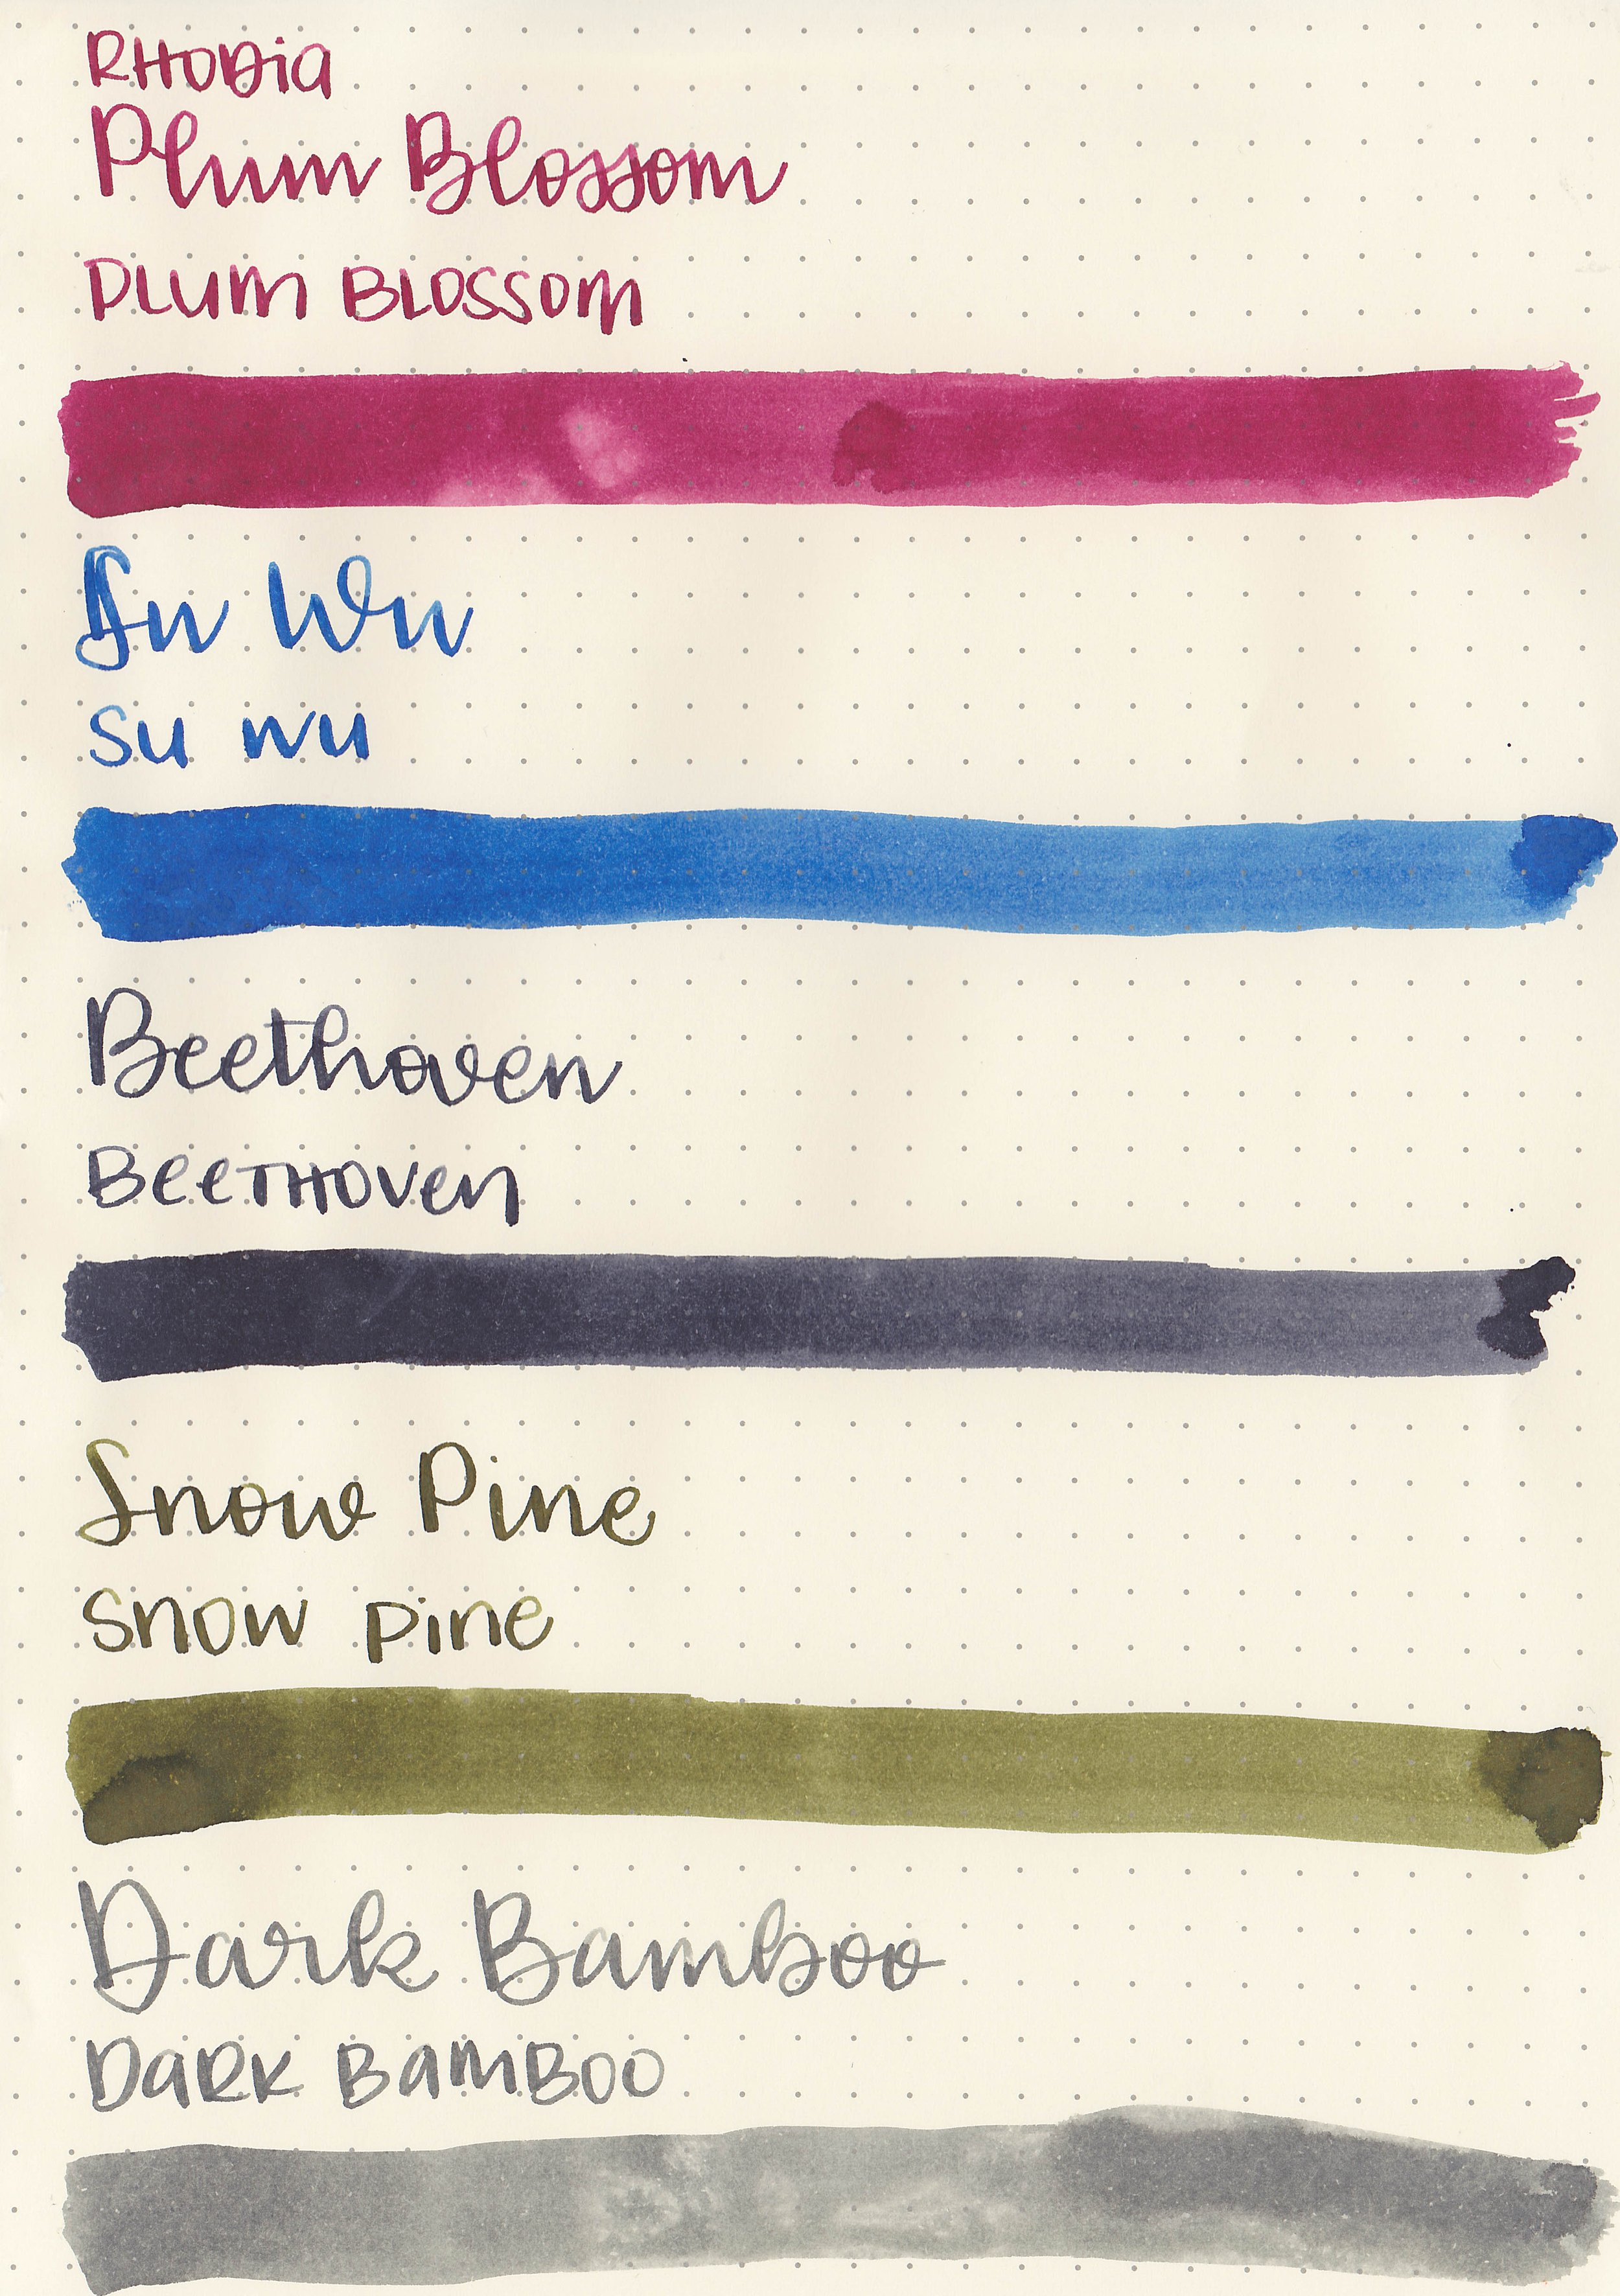 RHODia
Plum Blossom
PLUM BLOSSOM
Su Wu
Su wu
Beethoven
BeeTHOVen
Snow Pine
Snow pine
Dark Bamboo
DaRK BamBOO